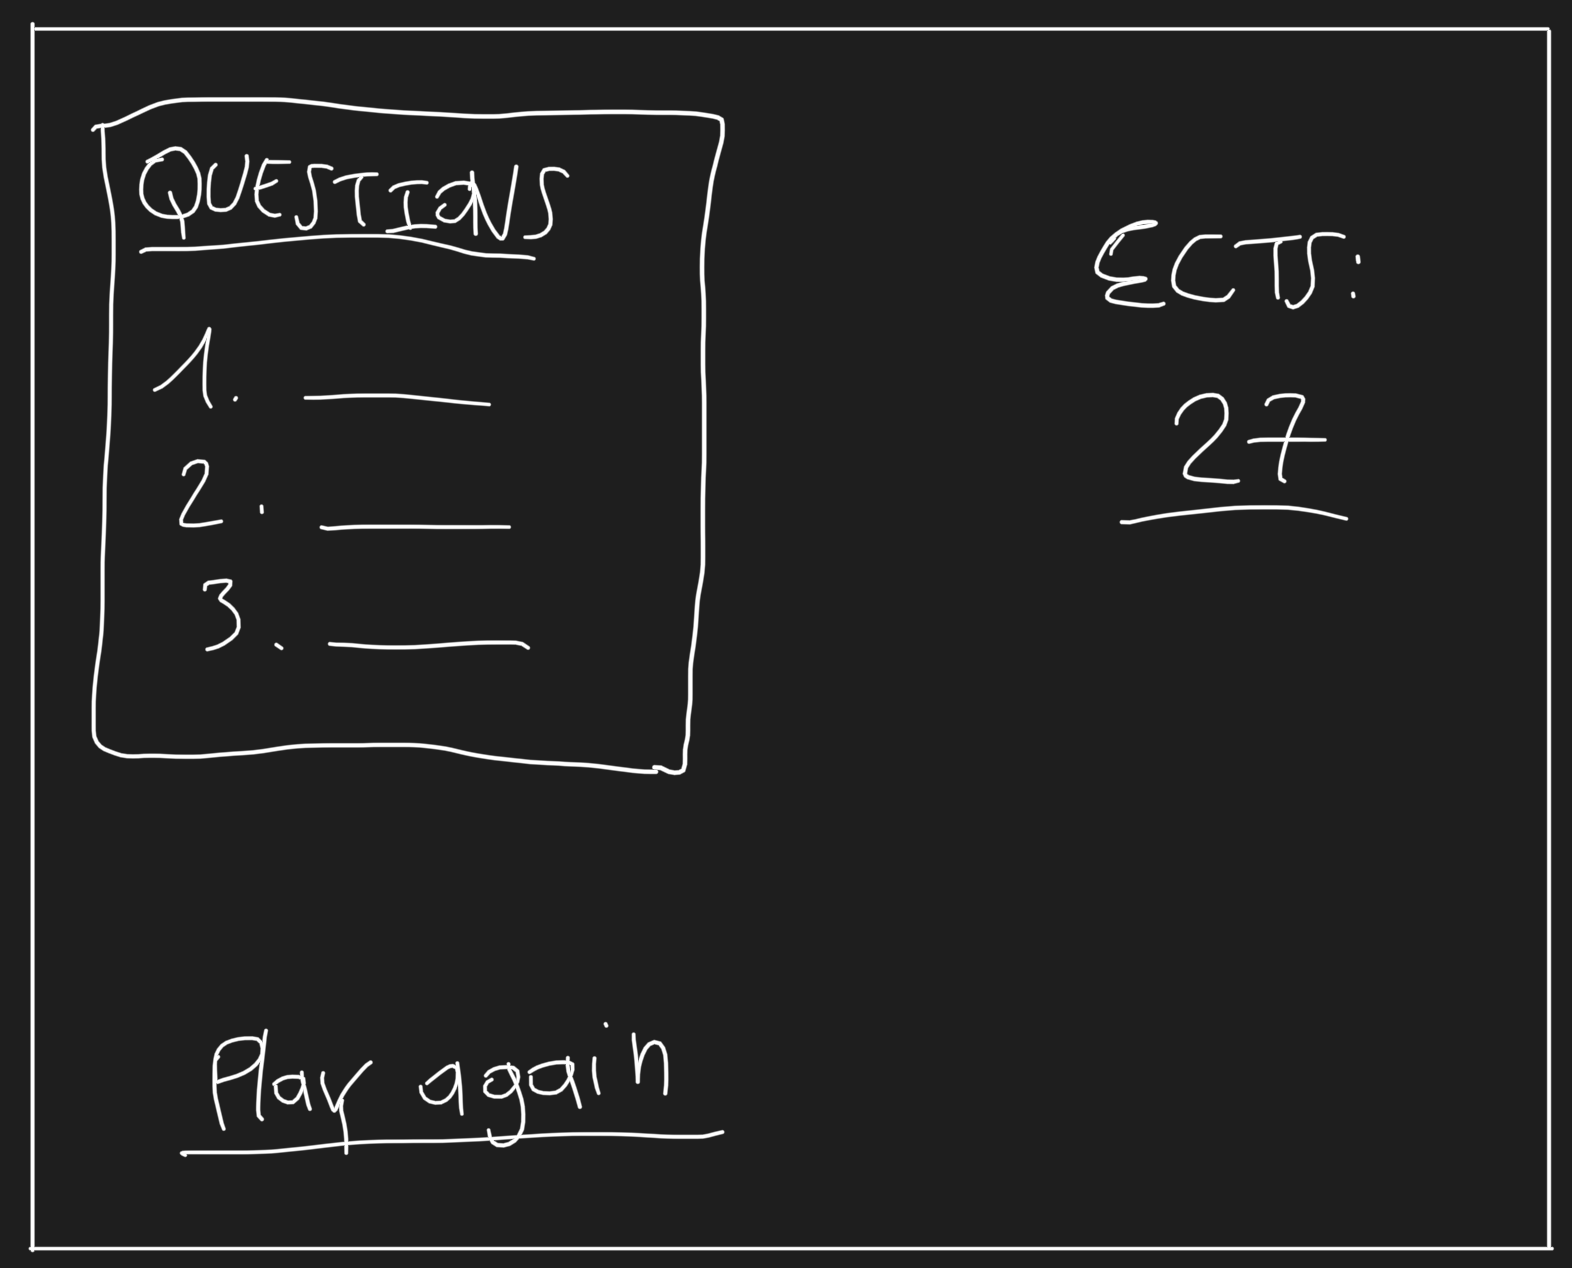 QUESTIONS
1. ______
2. ______
3. ______
ECTS:
27
Play again